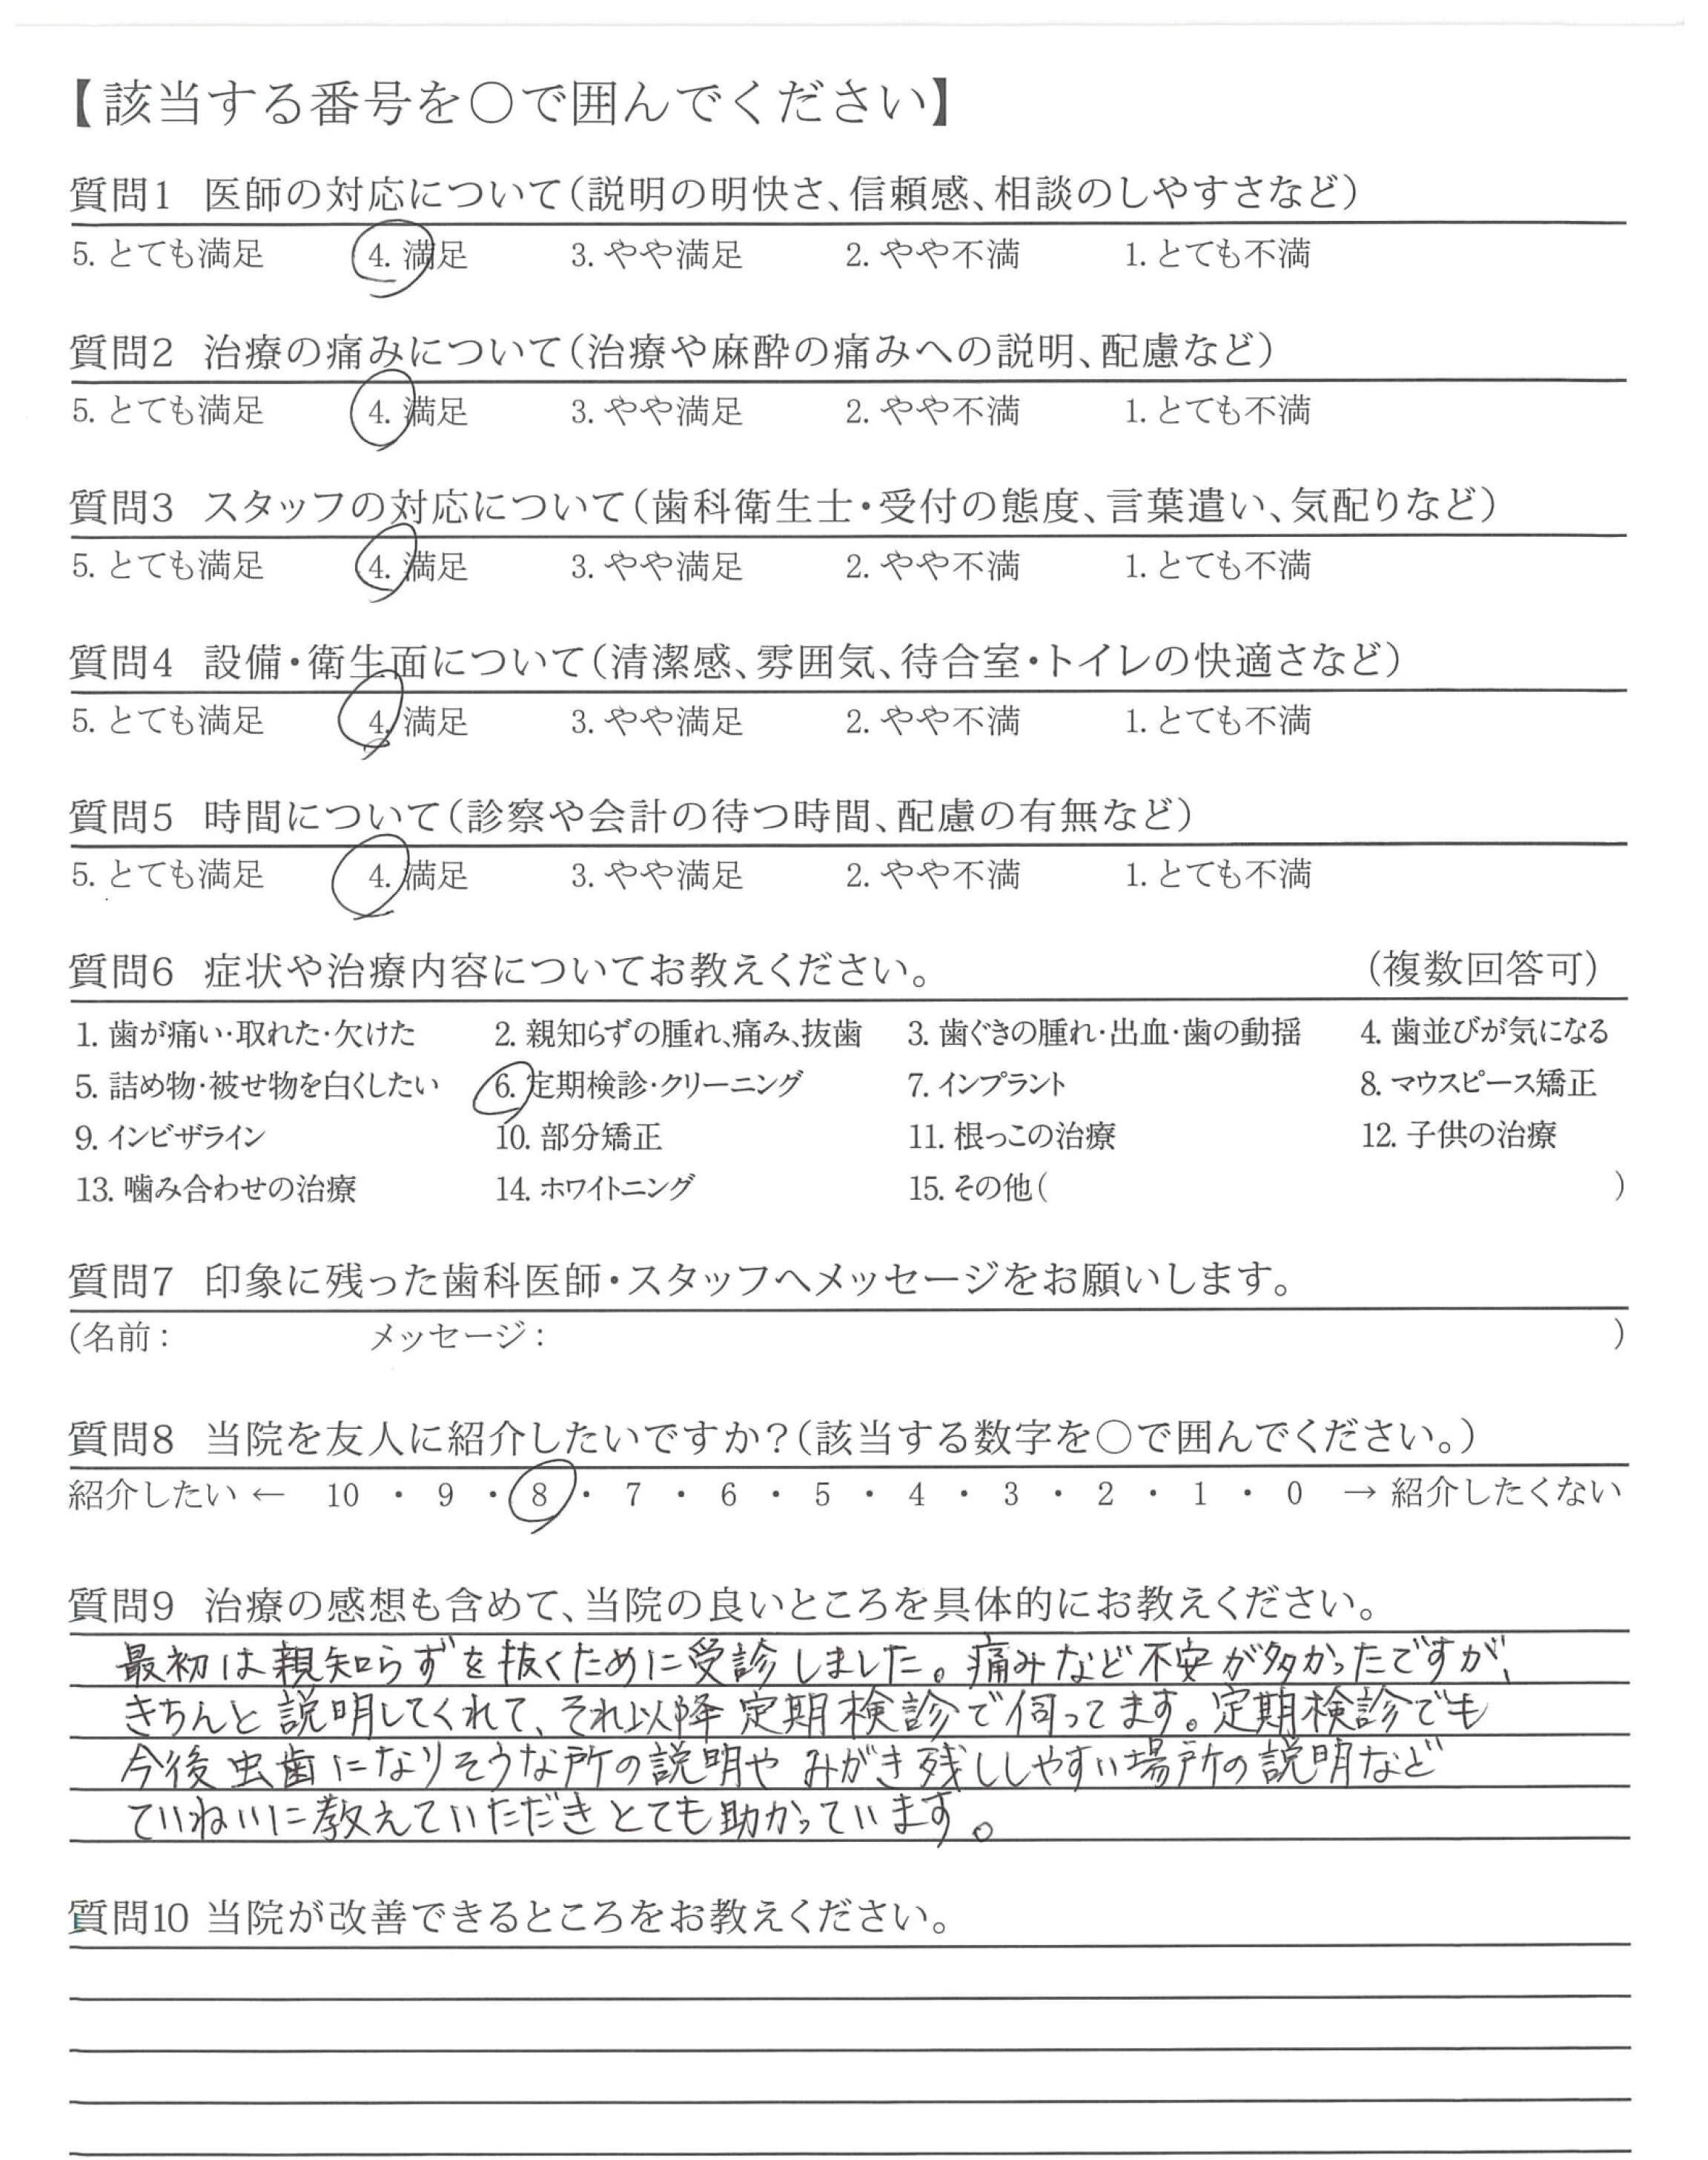 【該当する番号を○で囲んでください】
質問1 医師の対応について（説明の明快さ、信頼感、相談のしやすさなど）
5. とても満足 4. 満足 3. やや満足 2. やや不満 1. とても不満
質問2 治療の痛みについて（治療や麻酔の痛みへの説明、配慮など）
5. とても満足 4. 満足 3. やや満足 2. やや不満 1. とても不満
質問3 スタッフの対応について（歯科衛生士・受付の態度、言葉遣い、気配りなど）
5. とても満足 4. 満足 3. やや満足 2. やや不満 1. とても不満
質問4 設備・衛生面について（清潔感、雰囲気、待合室・トイレの快適さなど）
5. とても満足 4. 満足 3. やや満足 2. やや不満 1. とても不満
質問5 時間について（診察や会計の待つ時間、配慮の有無など）
5. とても満足 4. 満足 3. やや満足 2. やや不満 1. とても不満
質問6 症状や治療内容についてお教えください。 （複数回答可）
1. 歯が痛い・取れた・欠けた 2. 親知らずの腫れ、痛み、抜歯 3. 歯ぐきの腫れ・出血・歯の動揺 4. 歯並びが気になる
5. 詰め物・被せ物を白くしたい 6. 定期検診・クリーニング 7. インプラント 8. マウスピース矯正
9. インビザライン 10. 部分矯正 11. 根っこの治療 12. 子供の治療
13. 噛み合わせの治療 14. ホワイトニング 15. その他（ ）
質問7 印象に残った歯科医師・スタッフへメッセージをお願いします。
（名前： メッセージ： ）
質問8 当院を友人に紹介したいですか？（該当する数字を○で囲んでください。）
紹介したい ← 10 ・ 9 ・ 8 ・ 7 ・ 6 ・ 5 ・ 4 ・ 3 ・ 2 ・ 1 ・ 0 → 紹介したくない
質問9 治療の感想も含めて、当院の良いところを具体的にお教えください。
最初は親知らずを抜くために受診しました。痛みなど不安が多かったですが、
きちんと説明してくれて、それ以降定期検診で伺ってます。定期検診でも
今後虫歯になりそうな所の説明やみがき残ししやすい場所の説明など
ていねいに教えていただきとても助かっています。
質問10 当院が改善できるところをお教えください。